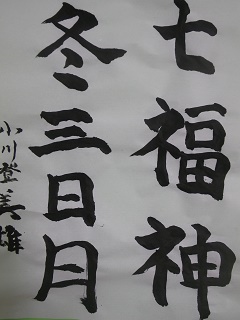 七福神
冬三日月
小川登美雄